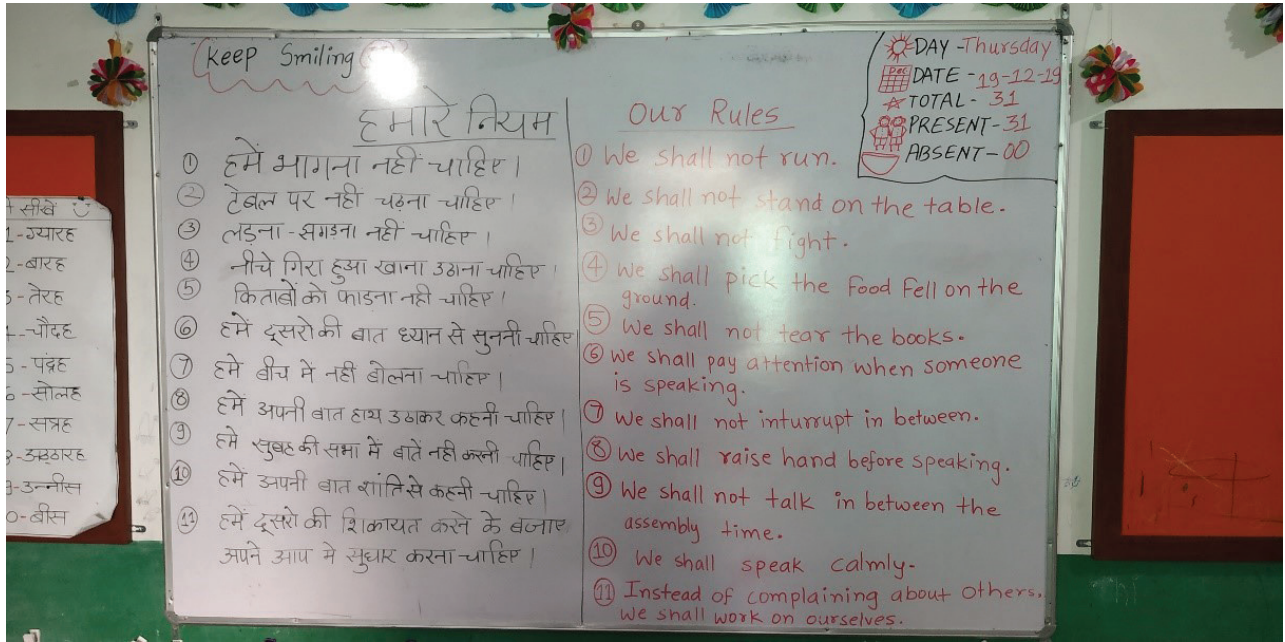 Keep Smiling
DAY - Thursday
DATE - 19-12-19
TOTAL - 31
PRESENT - 31
ABSENT - 00
हमारे नियम
① हमें भागना नहीं चाहिए।
② टेबल पर नही चढ़ना चाहिए।
③ लड़ना - झगडना नहीं चाहिए।
④ नीचे गिरा हुआ खाना उठाना चाहिए।
⑤ किताबों को फाडना नही चाहिए।
⑥ हमें दूसरो की बात ध्यान से सुननी चाहिए।
⑦ हमे बीच में नही बोलना चाहिए।
⑧ हमें अपनी बात हाथ उठाकर कहनी चाहिए।
⑨ हमे सुबह की सभा में बातें नही करनी चाहिए।
⑩ हमें अपनी बात शांति से कहनी चाहिए।
⑪ हमें दूसरो की शिकायत करने के बजाए
अपने आप मे सुधार करना चाहिए।
Our Rules
① We shall not run.
② We shall not stand on the table.
③ We shall not fight.
④ We shall pick the food fell on the
ground.
⑤ We shall not tear the books.
⑥ We shall pay attention when someone
is speaking.
⑦ We shall not inturrupt in between.
⑧ We shall raise hand before speaking.
⑨ We shall not talk in between the
assembly time.
⑩ We shall speak calmly.
⑪ Instead of complaining about others,
we shall work on ourselves.
सीखें
1 - ग्यारह
2 - बारह
3 - तेरह
4 - चौदह
5 - पंद्रह
6 - सोलह
7 - सत्रह
8 - अठ्ठारह
9 - उन्नीस
0 - बीस